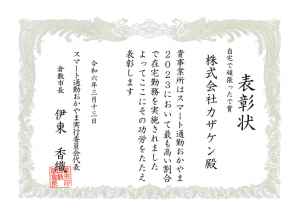 表彰状
自宅で頑張ったで賞
株式会社カザケン殿
貴事業所はスマート通勤おかやま
2023において最も高い割合
で在宅勤務を実施されました
よってここにその功労をたたえ
表彰します
令和六年三月十三日
スマート通勤おかやま実行委員会代表
倉敷市長 伊東 香織